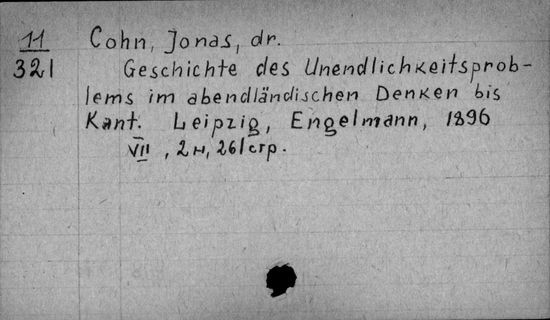 11
321
Cohn, Jonas, dr.
Geschichte des Unendlichkeitsprob-
lems im abendländischen Denken bis
Kant. Leipzig, Engelmann, 1896
VII, 2н, 261стр.